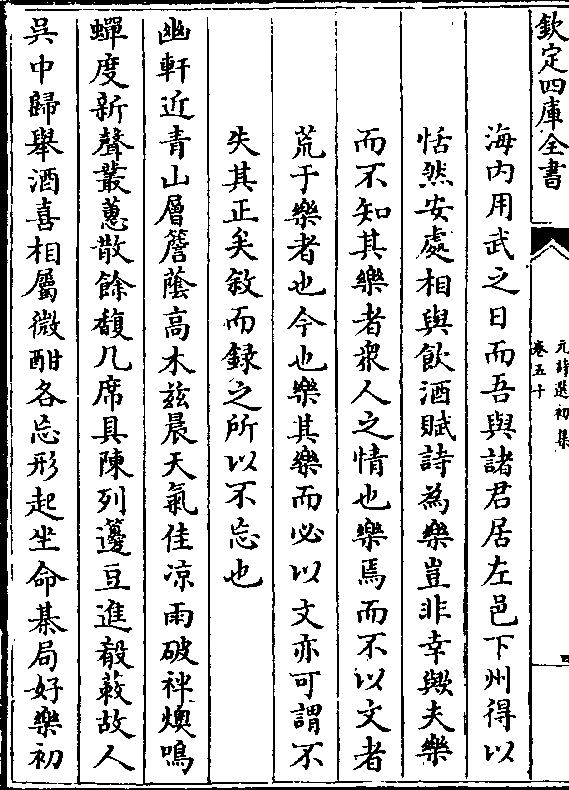 欽定四庫全書
元詩選初集
卷五十
四
海内用武之日而吾與諸君居左邑下州得以
恬然安處相與飲酒賦詩為樂豈非幸歟夫樂
而不知其樂者衆人之情也樂焉而不以文者
荒于樂者也今也樂其樂而必以文亦可謂不
失其正矣敘而録之所以不忘也
幽軒近青山層簷蔭高木兹晨天氣佳凉雨破袢燠鳴
蟬度新聲叢蕙散餘馥几席具陳列籩豆進殽蔌故人
吳中歸舉酒喜相屬微酣各忘形起坐命棊局好樂初